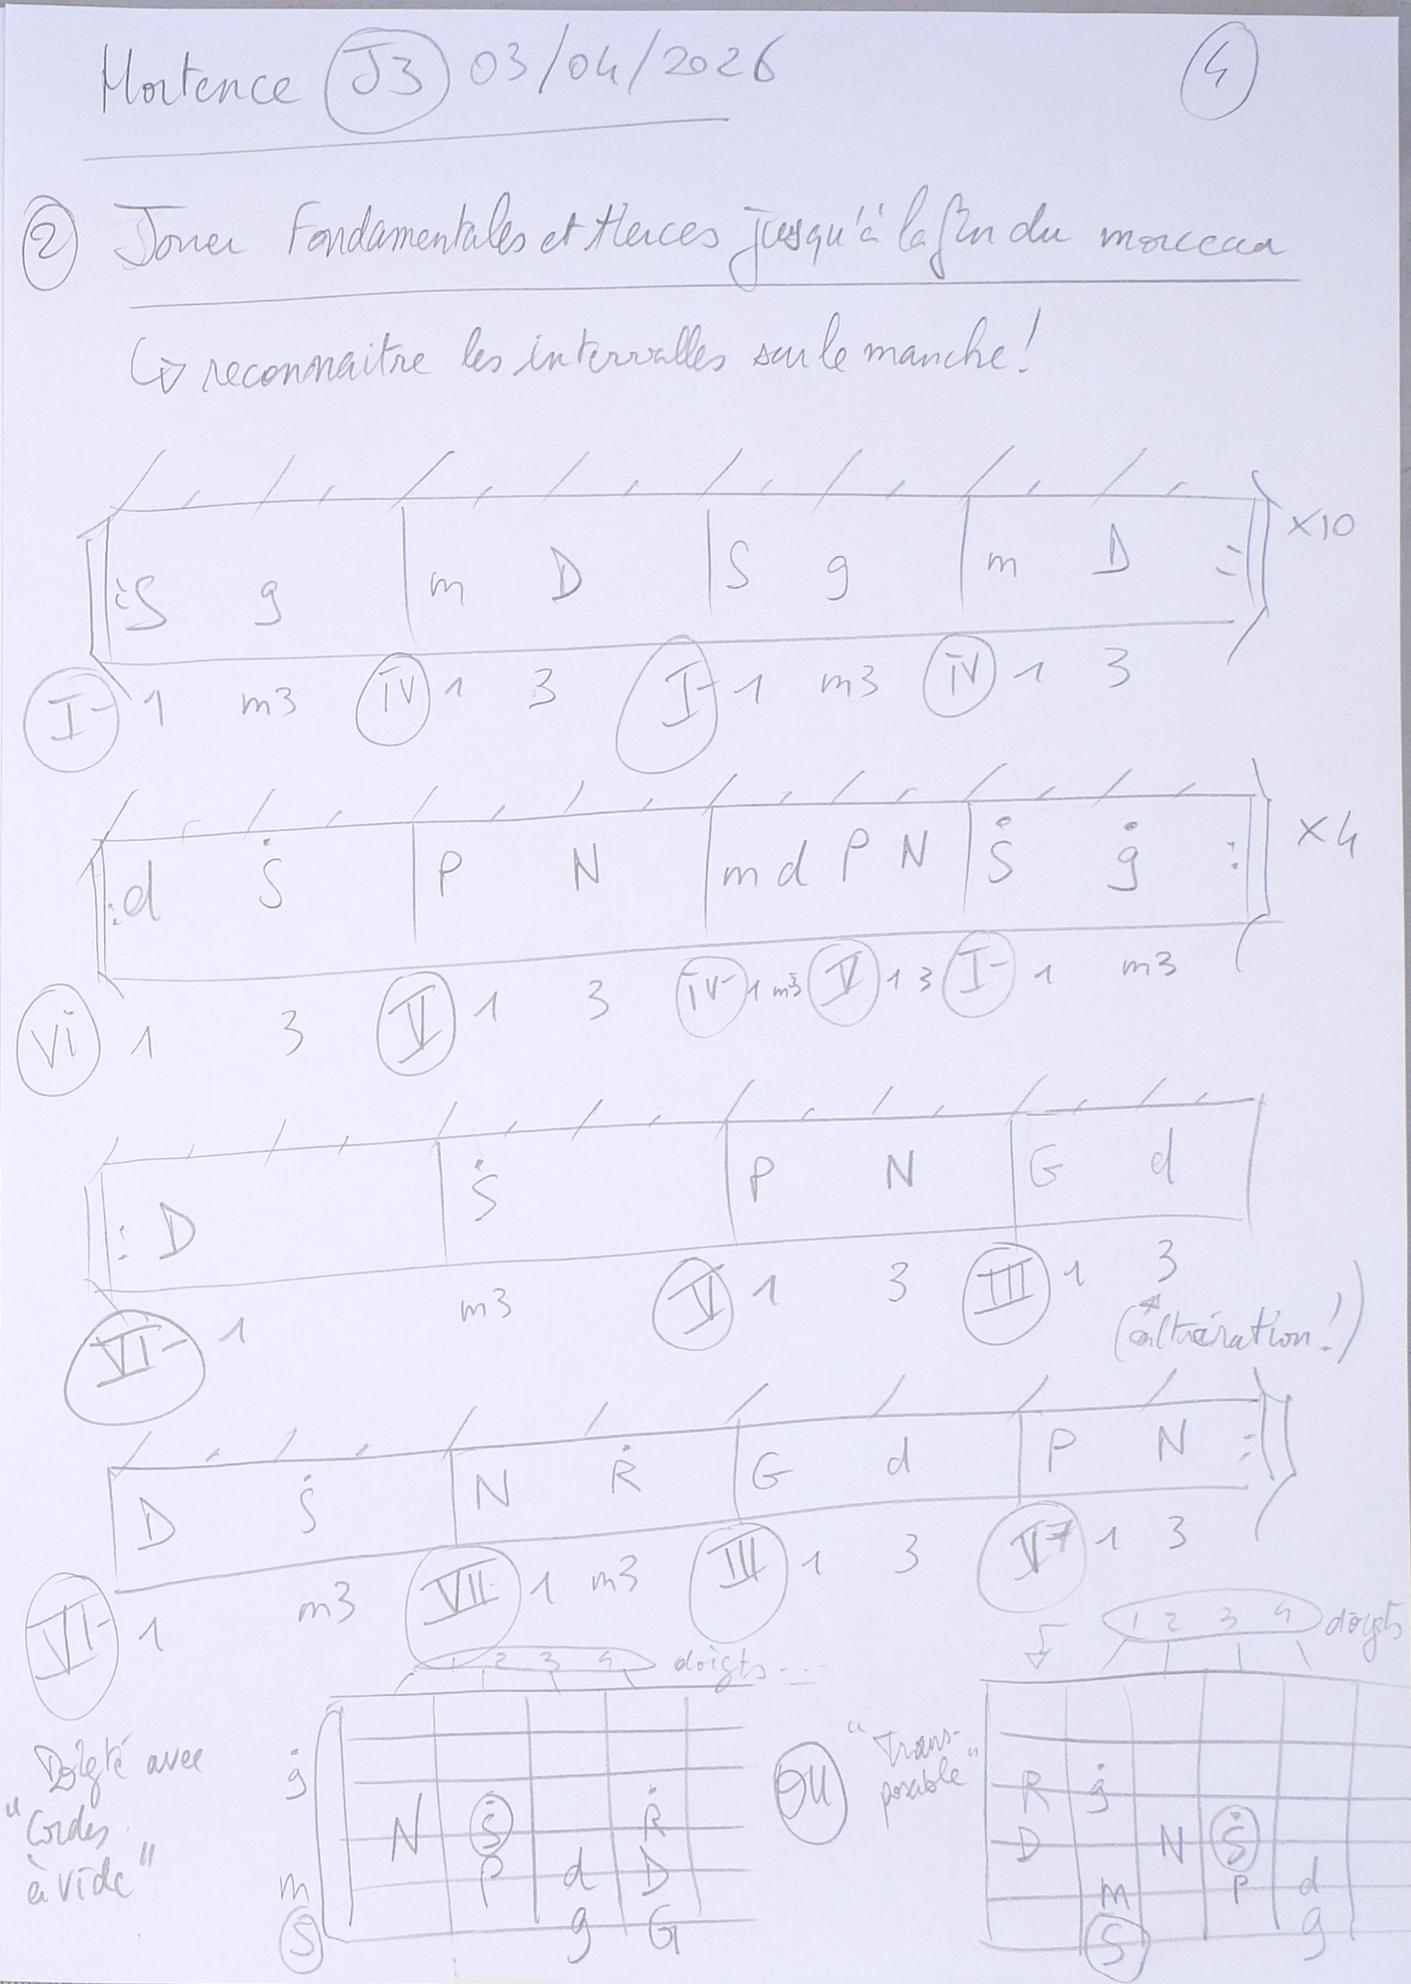 Hortence J3 03/04/2026 4
2 Jouer Fondamentales et tierces jusqu'à la fin du morceau
↳ reconnaitre les intervalles sur le manche!
S g | m D | S g | m D x10
I- 1 m3 IV 1 3 I- 1 m3 IV 1 3
d Ṡ | P N | m d P N | Ṡ ġ x4
VI 1 3 V 1 3 IV- 1 m3 V 1 3 I- 1 m3
D | Ṡ | P N | G d
VI- 1 m3 V 1 3 III 1 3
(altération!)
D Ṡ | N Ṙ | G d | P N
VI- 1 m3 VII- 1 m3 III 1 3 V7 1 3
1 2 3 4 doigts...
1 2 3 4 doigts
Doigté avec
"Cordes
à vide"
ġ
N Ṡ Ṙ
m P d D
S g G
OU
"Trans-
posable"
R ġ
D N Ṡ
m P d
S g